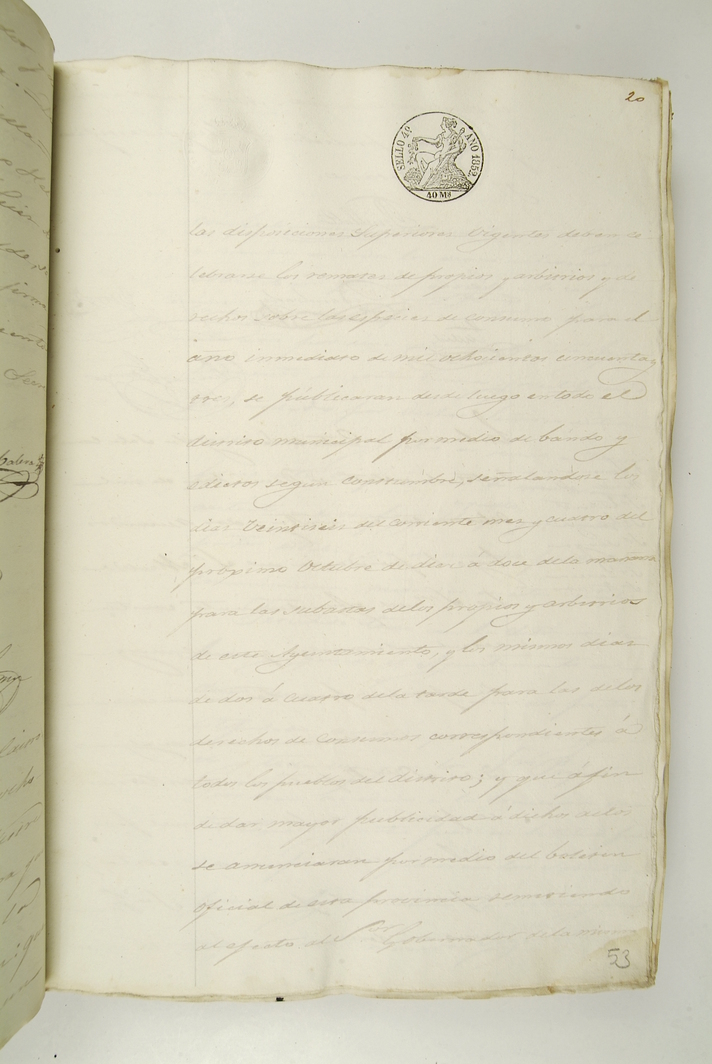 20
SELLO 4º AÑO 1852.
40 Ms
las disposiciones Superiores vigentes deven ce-
lebrarse los remates de propios y arbitrios y de-
rechos sobre las especies de consumo para el
año inmediato de mil ochocientos cincuenta y
tres, se públicaran desde luego en todo el
distrito municipal por medio de bando y
edictos segun constumbre, señalandose los
dias veintiseis del corriente mes y cuatro del
próximo Octubre de diez á doce de la mañana
para las subastas de los propios y arbitrios
de este Ayuntamiento, y los mismos dias
de dos á cuatro de la tarde para las de los
derechos de Consumos correspondientes á
todos los pueblos del distrito; y que á fin
de dar mayor publicidad á dichos actos
se anunciaran por medio del boletin
oficial de esta provincia remitiendo
al efecto al Sor Gobernador de la misma
53